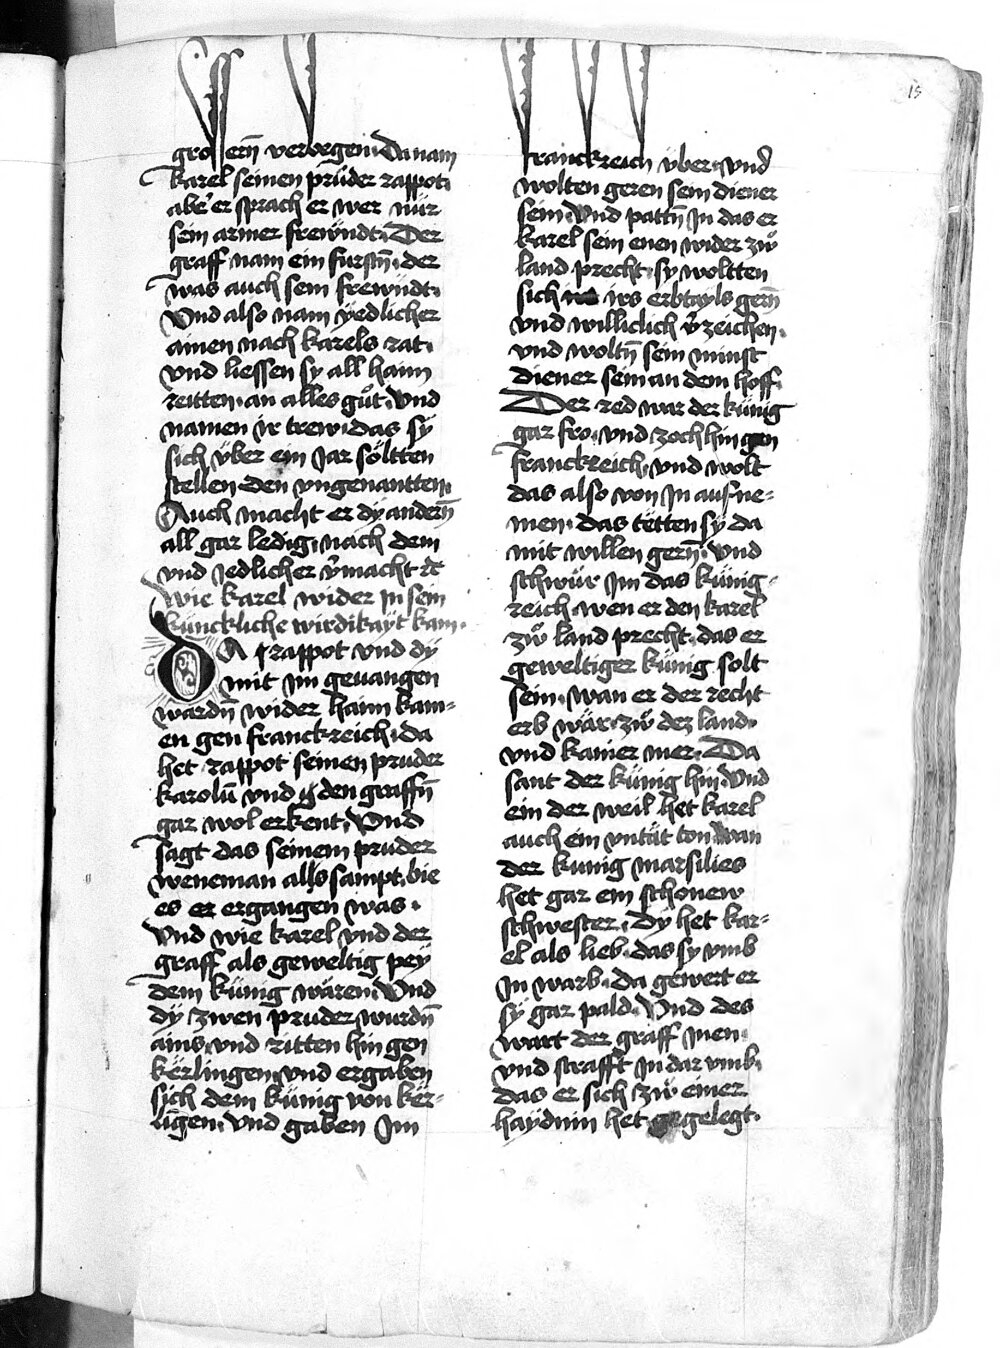 15
grossern verbegen. Da nam
karel seinen prüder rappot.
aber er sprach er wer nür
sein armer frewndt. Der
graff nam ein fürstn̄. der
was auch sein frewndt.
Vnd also nam yedlicher
ainen nach karels rat.
vnd liessen sy all haim
reitten. an alles gůt. Vnd
namen ir trew. das sy
sich über ein jar söltten
stellen. den vngenantten.
Auch macht er dy andern̄
all gar ledig. nach dem
vnd Jedlicher v̄macht rc
Wie karel wider in sein
künckliche wirdikayt kam.
DA rappot vnd dy
mit im geuangen
wardn̄ wider haim kam=
en gen franckreich. da
het rappot seinen pruder
karolū vnd den graffn̄
gar wol erkent. Vnd
sagt das seinem pruder
weneman alls sampt. bie
es er ergangen was.
Vnd wie karel vnd der
graff als geweltig pey
dem künig wären. Vnd
dy zwen pruder wurdn̄
ains. vnd ritten hin gen
kërlingen. vnd ergaben
sich dem künig von kër=
lingen. vnd gaben Im
franckreich über. vnd
wolten geren sein diener
sein. Vnd pattn̄ In das er
karel sein enen wider zů
land precht. sy woltten
sich irs erbtayls gern̄
vnd williclich v̄zeichen.
vnd woltn̄ sein minst
diener sein an dem hoff.
Der red war der künig
gar fro. vnd zoch hin gen
franckreich. vnd wolt
das also von In auf ne=
men. das tetten sy da
mit willen gern̄. Vnd
schwür Im das künig=
reich. wen er den karel
zů land precht. das er
geweltiger künig solt
sein. wan er der recht
erb wär. zů dez land.
vnd kainer mer. Da
sant der künig hin. Vnd
ein der weil het karel
auch ein vntät ton wan
der kunig marsilies
het gar ein schonew
schwester. Dy het kar=
el als lieb. das sy vmb
In warb. da gewert er
sy gar pald. Vnd des
wart der graff Inen.
vnd strafft In dar vmb.
das er sich zů einer
haydnin het gelegt.